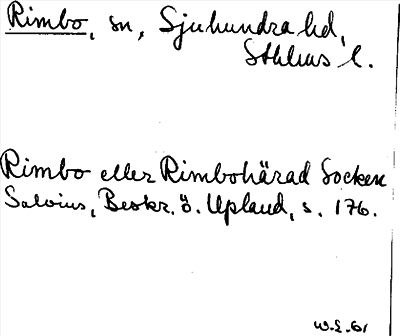 Rimbo, sn, Sjuhundra hd,
Sthlms l.
Rimbo eller Rimbohärad Socken
Salvius, Beskr. ö. Upland, s. 176.
W.L. 61